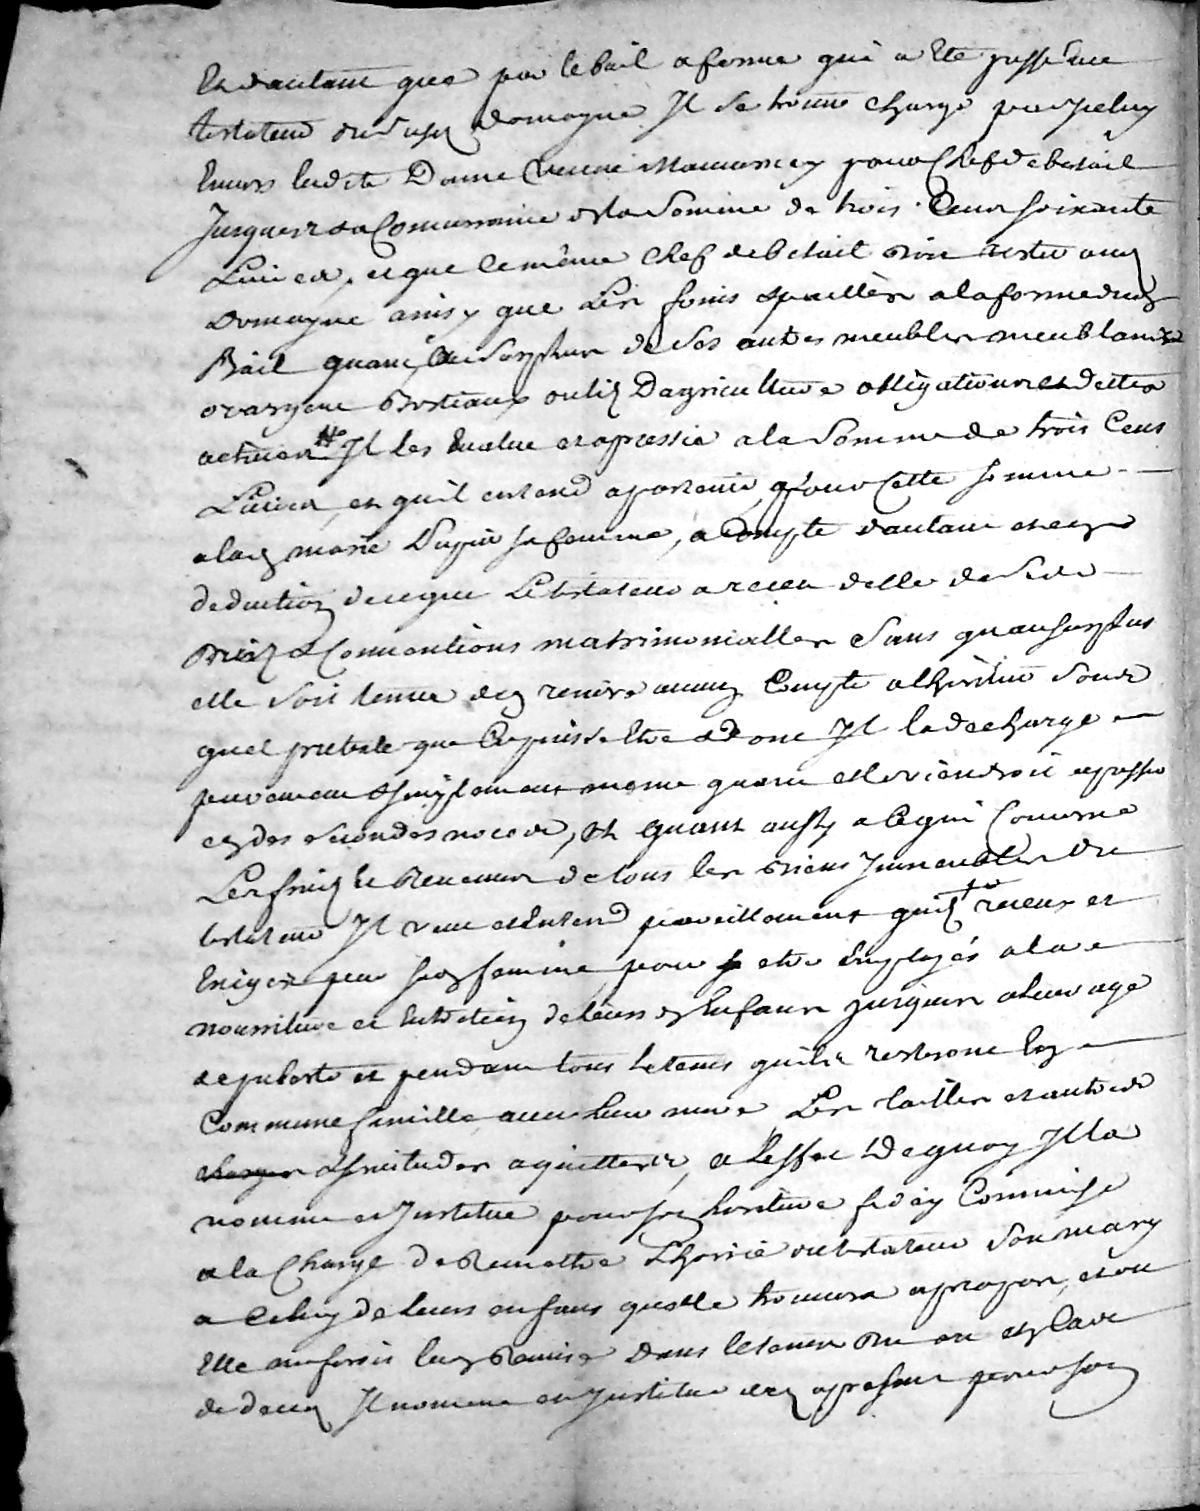 Et d'autant que par le bail a ferme qui a eté passé au
testateur dud. domayne Il se trouve chargé par yceluy
Envers ladite Dame veuve pour Chef de betail
Jusques a la Concurrance de la Somme de trois Cens soixante
Livres, et que le même Chef de betail doit rester aud.
Domayne ainsy que Les foins et pailles a la forme dud.
Bail quant au Surplus de Ses autres meubles meublants
or argent Bestiaux outils D'agriculture obligations et dettes
actives Il les Evalue et apressie a la Somme de trois Cens
Livres, et qu'il entend apartenir pour Cette somme
a lad. marie Dupin sa femme, a Compte d'autant et en
deduction de ce que Le testateur a receu d'elle de Ses
droits et Conventions matrimonialles Sans qu'au surplus
elle soit tenue d'en rendre aucun Compte a l'heritier Sous
quel pretexte que Ce puisse Etre et Dont Il la decharge
purement et simplement meme quant elle viendroit a passer
en des secondes noces, Et quant aussy a Ce qui Concerne
Les fruits et Revenus de tous les Biens Immeubles du
testateur Il veut et Entend pareillement qu'ils receus et
Exigés par sa femme, pour etre Employés a la
nourriture et Entretien de leurs Enfans jusques a leur age
de puberté et pendant tous le tems qu'ils resteront En
Commune famille avec leur mere Les tailles et autres
charges et servitudes aquittées, a L'effet De quoy Il la
nomme et Institue pour son heritiere fidey Commise
a la Charge de Remettre L'hoirie du testateur Son mary
a Celuy de leurs enfans qu'elle trouvera a propos, et ou
Elle ne feroit lad. Remise Dans le tems Ou en Cas
de deces Il nomme et Institue des a present pour son